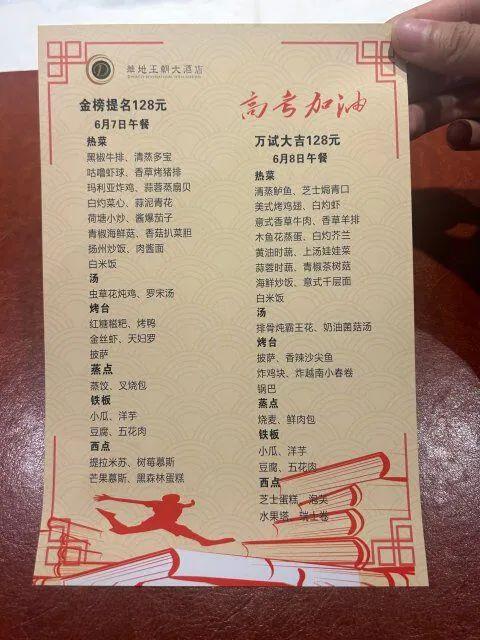 华地王朝大酒店
高考加油
金榜提名128元
6月7日午餐
热菜
黑椒牛排、清蒸多宝
咕噜虾球、香草烤猪排
玛利亚炸鸡、蒜蓉蒸扇贝
白灼菜心、蒜泥青花
荷塘小炒、酱爆茄子
青椒海鲜菇、香菇扒菜胆
扬州炒饭、肉酱面
白米饭
汤
虫草花炖鸡、罗宋汤
烤台
红糖糍粑、烤鸭
金丝虾、天妇罗
披萨
蒸点
蒸饺、叉烧包
铁板
小瓜、洋芋
豆腐、五花肉
西点
提拉米苏、树莓慕斯
芒果慕斯、黑森林蛋糕
万试大吉128元
6月8日午餐
热菜
清蒸鲈鱼、芝士焗青口
美式烤鸡翅、白灼虾
意式香草牛肉、香草羊排
木鱼花蒸蛋、白灼芥兰
黄油时蔬、上汤娃娃菜
蒜蓉时蔬、青椒茶树菇
海鲜炒饭、意式千层面
白米饭
汤
排骨炖霸王花、奶油菌菇汤
烤台
披萨、香辣沙尖鱼
炸鸡块、炸越南小春卷
锅巴
蒸点
烧麦、鲜肉包
铁板
小瓜、洋芋
豆腐、五花肉
西点
芝士蛋糕、泡芙
水果塔、瑞士卷